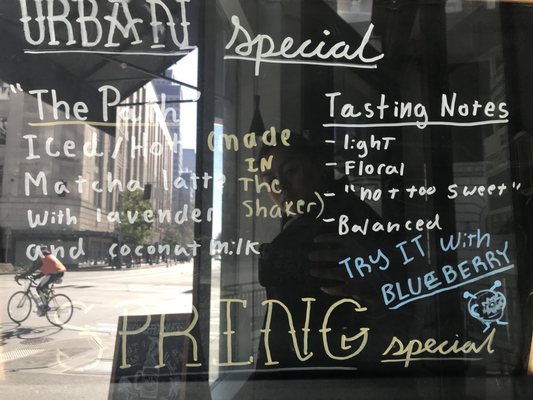 URBAN special
"The Path"
Iced/Hot (made
IN
Matcha latte THE
With lavender shaker)
and coconut milk
Tasting Notes
- light
- Floral
- "not too sweet"
- Balanced
TRY IT With
BLUEBERRY
SPRING special